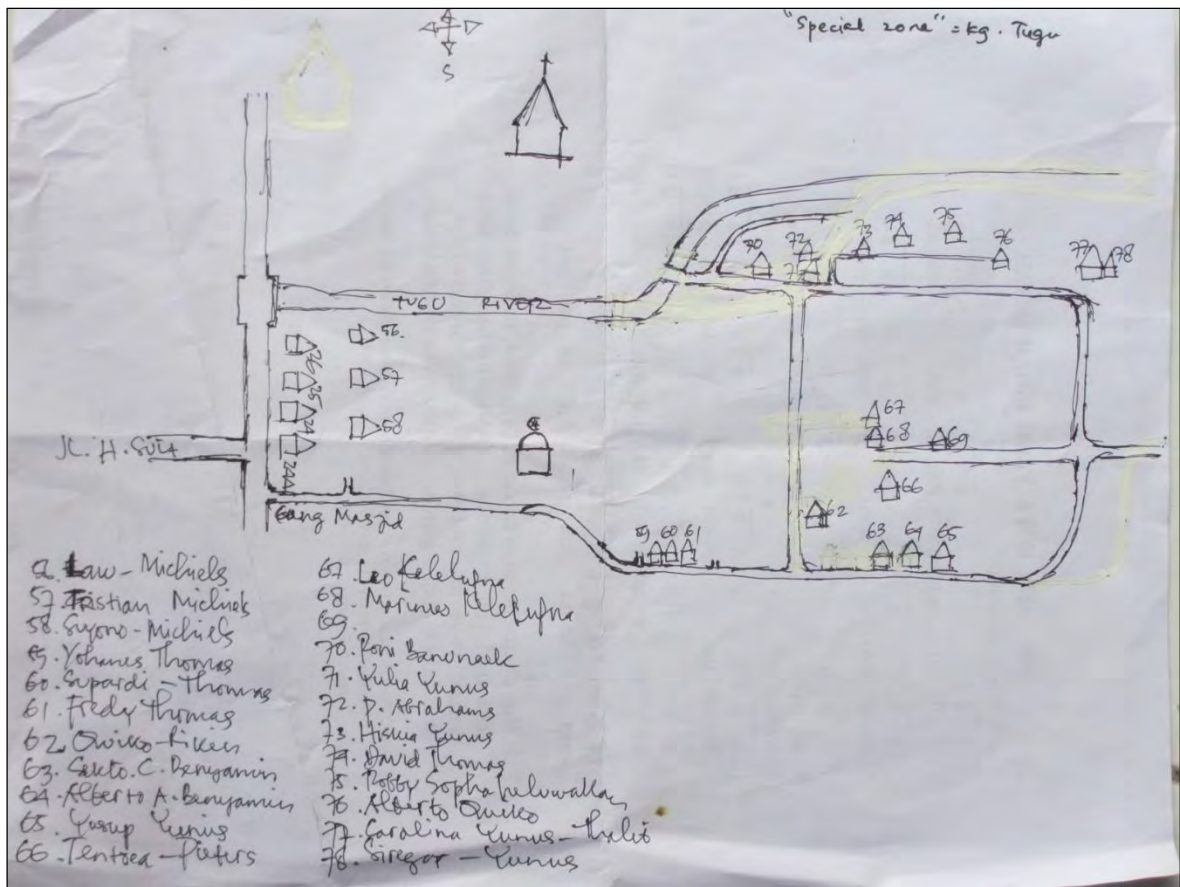 "Special zone" = kg. Tugu
S
70
72
73
74
75
76
77
78
TUGU RIVER
56.
57
58
26
25
24
67
68
69
66
62
59 60 61
63 64 65
Gang Masjid
56. Law-Michiels
57. Tristian Michiels
58. Suyono-Michiels
59. Yohanes Thomas
60. Supardi - Thomas
61. Fredy Thomas
62. Quiko-Riken
63. Sekto. C. Benyamin
64. Alberto A. Benyamin
65. Yusup Yunus
66. Tentoea - Pieters
67. Leo Kelelufna
68. Marinus Kelelufna
69.
70. Roni
71. Yulia Yunus
72. P. Abrahams
73. Hiskia Yunus
74. David Thomas
75. Robby
76. Alberto Quiko
77. Sarolina Yunus-
78. Siregar - Yunus